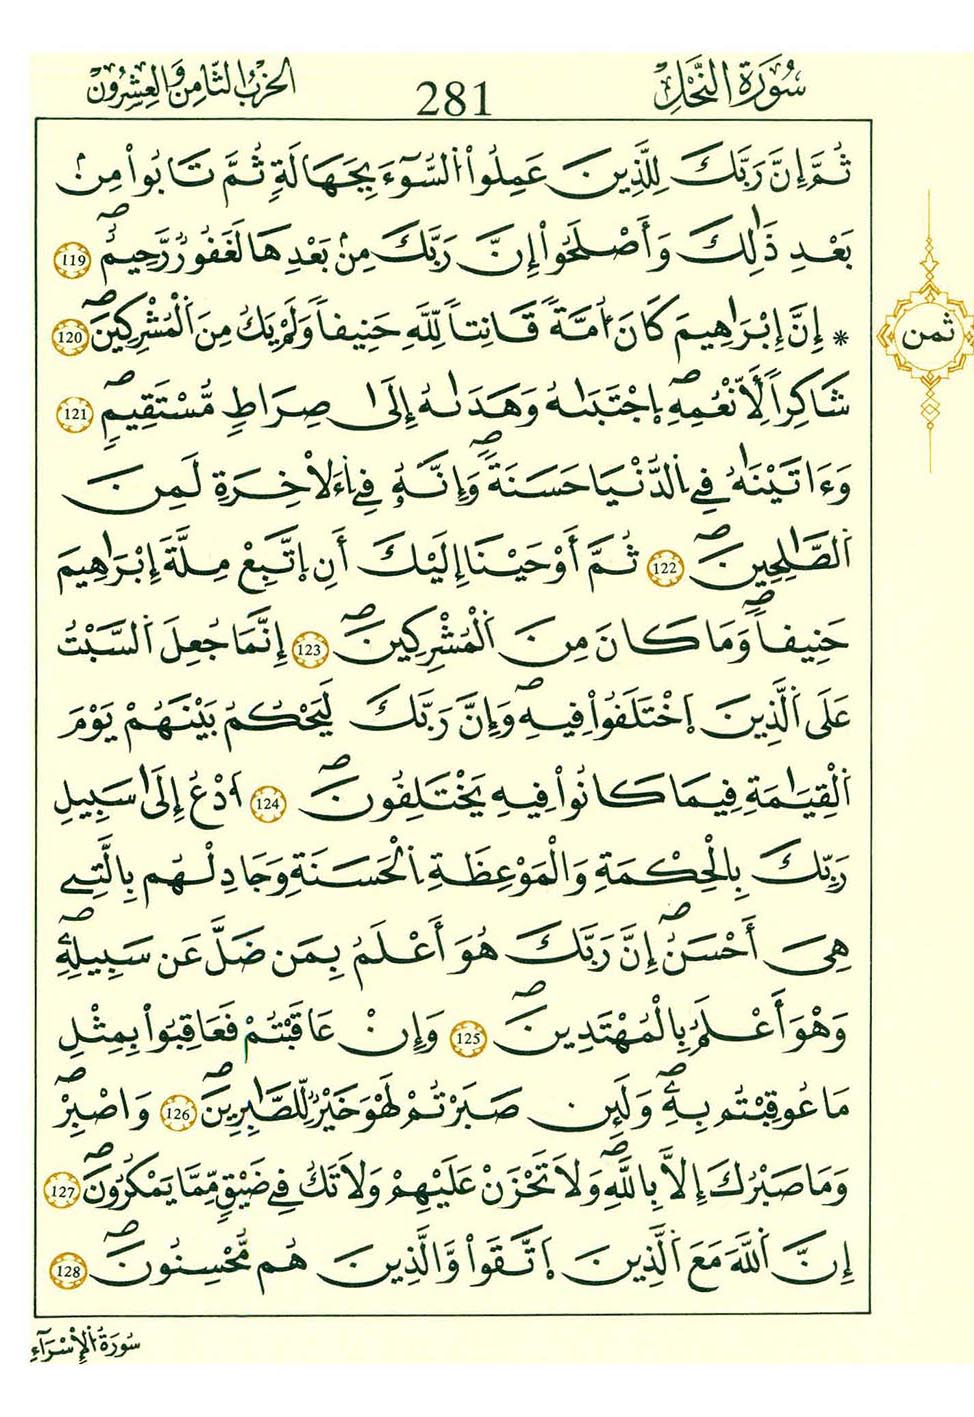 سُورَةُ النَّحْلِ
281
الحِزْبُ الثَّامِنُ وَالعِشْرُونَ
ثُمَّ إِنَّ رَبَّكَ لِلَّذِينَ عَمِلُواْ السُّوٓءَ بِجَهَٰلَةٖ ثُمَّ تَابُواْ مِنۢ
بَعْدِ ذَٰلِكَ وَأَصْلَحُواْ إِنَّ رَبَّكَ مِنۢ بَعْدِهَا لَغَفُورٞ رَّحِيمٌۖ 119
* إِنَّ إِبْرَٰهِيمَ كَانَ أُمَّةٗ قَانِتاٗ لِّلهِ حَنِيفاٗ وَلَمْ يَكُ مِنَ اَ۬لْمُشْرِكِينَۖ 120
شَاكِراٗ لِّأَنْعُمِهِۖ اِ۪جْتَبَيٰهُ وَهَدَيٰهُ إِلَىٰ صِرَٰطٖ مُّسْتَقِيمٖۖ 121
وَءَاتَيْنَٰهُ فِے اِ۬لدُّنْيَا حَسَنَةٗۖ وَإِنَّهُۥ فِے اِ۬لَاخِرَةِ لَمِنَ
اَ۬لصَّٰلِحِينَۖ 122 ثُمَّ أَوْحَيْنَا إِلَيْكَ أَنِ اِ۪تَّبِعْ مِلَّةَ إِبْرَٰهِيمَ
حَنِيفاٗۖ وَمَا كَانَ مِنَ اَ۬لْمُشْرِكِينَۖ 123 إِنَّمَا جُعِلَ اَ۬لسَّبْتُ
عَلَى اَ۬لَّذِينَ اَ۪خْتَلَفُواْ فِيهِۖ وَإِنَّ رَبَّكَ لَيَحْكُمُ بَيْنَهُمْ يَوْمَ
اَ۬لْقِيَٰمَةِ فِيمَا كَانُواْ فِيهِ يَخْتَلِفُونَۖ 124 اَ۟دْعُ إِلَىٰ سَبِيلِ
رَبِّكَ بِالْحِكْمَةِ وَالْمَوْعِظَةِ اِ۬لْحَسَنَةِ وَجَٰدِلْهُم بِالَّتِے
هِيَ أَحْسَنُۖ إِنَّ رَبَّكَ هُوَ أَعْلَمُ بِمَن ضَلَّ عَن سَبِيلِهِۦ
وَهْوَ أَعْلَمُ بِالْمُهْتَدِينَۖ 125 وَإِنْ عَاقَبْتُمْ فَعَاقِبُواْ بِمِثْلِ
مَا عُوقِبْتُم بِهِۦۖ وَلَئِن صَبَرْتُمْ لَهْوَ خَيْرٞ لِّلصَّٰبِرِينَۖ 126 وَاصْبِرْۖ
وَمَا صَبْرُكَ إِلَّا بِاللَّهِۖ وَلَا تَحْزَنْ عَلَيْهِمْ وَلَا تَكُ فِے ضَيْقٖ مِّمَّا يَمْكُرُونَۖ 127
إِنَّ اَ۬للَّهَ مَعَ اَ۬لَّذِينَ اَ۪تَّقَواْ وَّالَّذِينَ هُم مُّحْسِنُونَۖ 128
ثمن
سُورَةُ الْإِسْرَآءِ